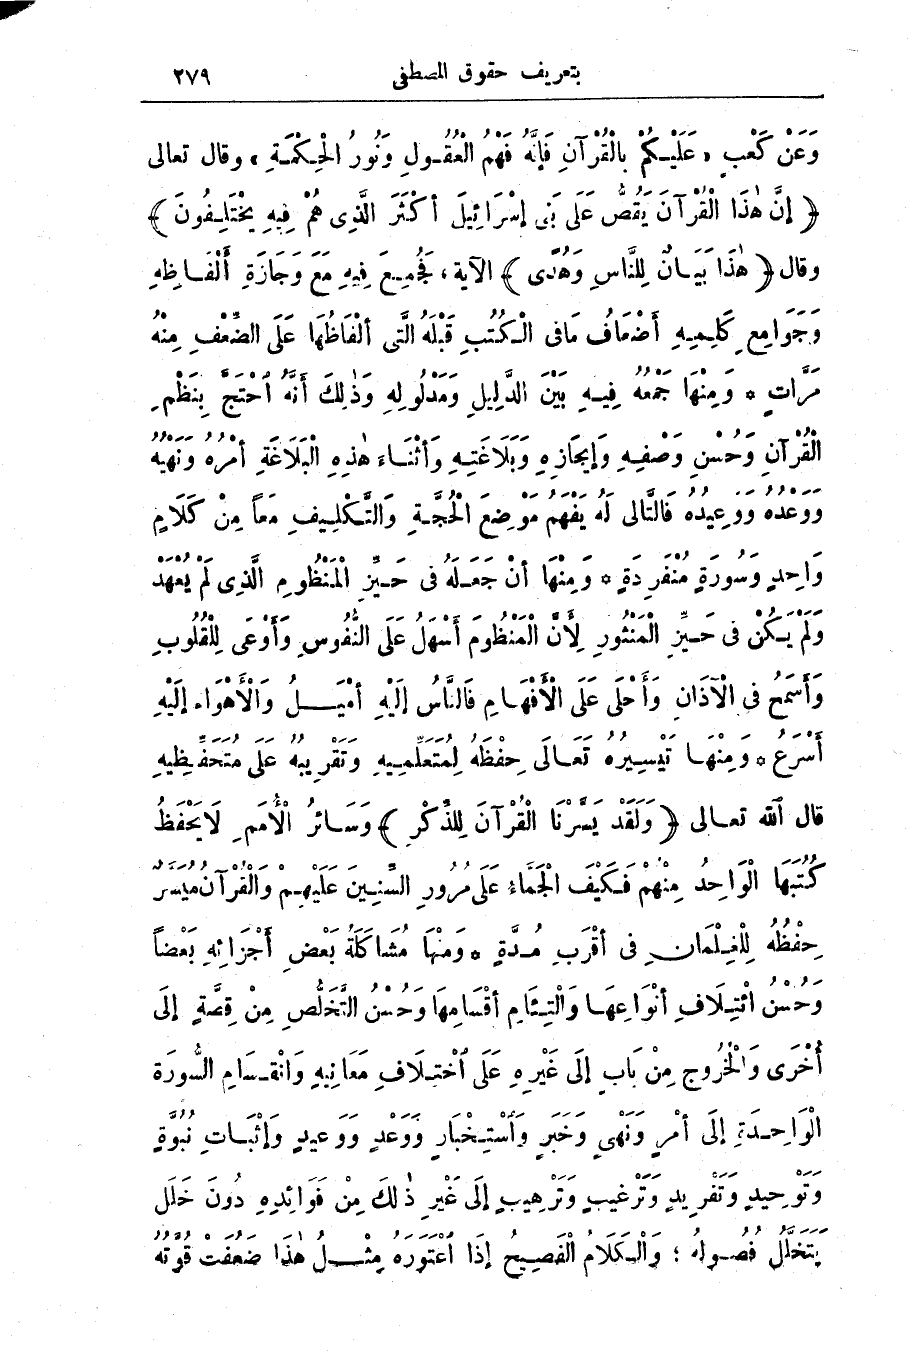 بتعريف حقوق المصطفى ٢٧٩
وَعَنْ كَعْبٍ «عَلَيْكُمْ بِالْقُرْآنِ فَإِنَّهُ فَهْمُ الْعُقُولِ وَنُورُ الْحِكْمَةِ» وقال تعالى
﴿ إِنَّ هٰذَا الْقُرْآنَ يَقُصُّ عَلَى بَنِى إِسْرَائِيلَ أَكْثَرَ الَّذِى هُمْ فِيهِ يَخْتَلِفُونَ ﴾
وقال ﴿ هٰذَا بَيَانٌ لِلنَّاسِ وَهُدًى ﴾ الآية، فَجُمِعَ فِيهِ مَعَ وَجَازَةِ أَلْفَاظِهِ
وَجَوَامِعِ كَلِمِهِ أَضْعَافُ مَافى الْكُتُبِ قَبْلَهُ الَّتِى أَلْفَاظُهَا عَلَى الضِّعْفِ مِنْهُ
مَرَّاتٍ * وَمِنْهَا جَمْعُهُ فِيهِ بَيْنَ الدَّلِيلِ وَمَدْلُولِهِ وَذٰلِكَ أَنَّهُ احْتَجَّ بِنَظْمِ
الْقُرْآنِ وَحُسْنِ وَصْفِهِ وَإِيجَازِهِ وَبَلَاغَتِهِ وَأَثْنَاءَ هٰذِهِ الْبَلَاغَةِ أَمْرُهُ وَنَهْيُهُ
وَوَعْدُهُ وَوَعِيدُهُ فَالتَّالِى لَهُ يَفْهَمُ مَوْضِعَ الْحُجَّةِ وَالتَّكْلِيفِ مَعاً مِنْ كَلَامٍ
وَاحِدٍ وَسُورَةٍ مُنْفَرِدَةٍ * وَمِنْهَا أَنْ جَعَلَهُ فى حَيِّزِ الْمَنْظُومِ الَّذِى لَمْ يُعْهَدْ
وَلَمْ يَكُنْ فى حَيِّزِ الْمَنْثُورِ لِأَنَّ الْمَنْظُومَ أَسْهَلُ عَلَى النُّفُوسِ وَأَوْعَى لِلْقُلُوبِ
وَأَسْمَعُ فى الْآذَانِ وَأَحْلَى عَلَى الْأَفْهَامِ فَالنَّاسُ إِلَيْهِ أَمْيَلُ وَالْأَهْوَاءُ إِلَيْهِ
أَسْرَعُ * وَمِنْهَا تَيْسِيرُهُ تَعَالَى حِفْظَهُ لِمُتَعَلِّمِيهِ وَتَقْرِيبُهُ عَلَى مُتَحَفِّظِيهِ
قال الله تعالى ﴿ وَلَقَدْ يَسَّرْنَا الْقُرْآنَ لِلذِّكْرِ ﴾ وَسَائِرُ الْأُمَمِ لَا يَحْفَظُ
كُتُبَهَا الْوَاحِدُ مِنْهُمْ فَكَيْفَ الْجَمَّاءُ عَلَى مُرُورِ السِّنِينَ عَلَيْهِمْ وَالْقُرْآنُ مُيَسَّرٌ
حِفْظُهُ لِلْغِلْمَانِ فى أَقْرَبِ مُدَّةٍ * وَمِنْهَا مُشَاكَلَةُ بَعْضِ أَجْزَائِهِ بَعْضاً
وَحُسْنُ ائْتِلَافِ أَنْوَاعِهَا وَالْتِئَامِ أَقْسَامِهَا وَحُسْنُ التَّخَلُّصِ مِنْ قِصَّةٍ إِلَى
أُخْرَى وَالْخُرُوجِ مِنْ بَابٍ إِلَى غَيْرِهِ عَلَى اخْتِلَافِ مَعَانِيهِ وَانْقِسَامِ السُّورَةِ
الْوَاحِدَةِ إِلَى أَمْرٍ وَنَهْىٍ وَخَبَرٍ وَاسْتِخْبَارٍ وَوَعْدٍ وَوَعِيدٍ وَإِثْبَاتِ نُبُوَّةٍ
وَتَوْحِيدٍ وَتَفْرِيدٍ وَتَرْغِيبٍ وَتَرْهِيبٍ إِلَى غَيْرِ ذٰلِكَ مِنْ فَوَائِدِهِ دُونَ خَلَلٍ
يَتَخَلَّلُ فُصُولَهُ ؛ وَالْكَلَامُ الْفَصِيحُ إِذَا اعْتَوَرَهُ مِثْلُ هٰذَا ضَعُفَتْ قُوَّتُهُ